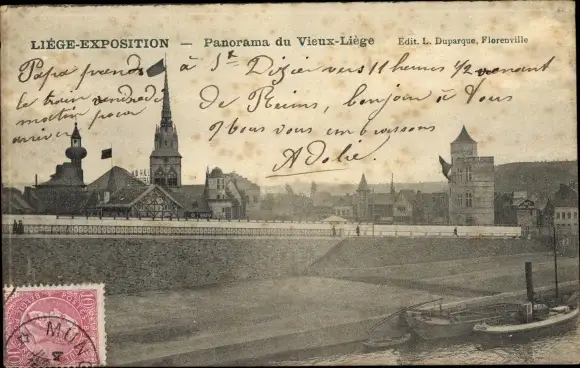 LIÈGE-EXPOSITION — Panorama du Vieux-Liège Edit. L. Duparque, Florenville
Papa prends
le train vendredi
matin pour
arriver
à St Dizier vers 11 heures 1/2 venant
de Reims, bonjour à Vous
Nous vous embrassons
Adolie
10 10
MUNO